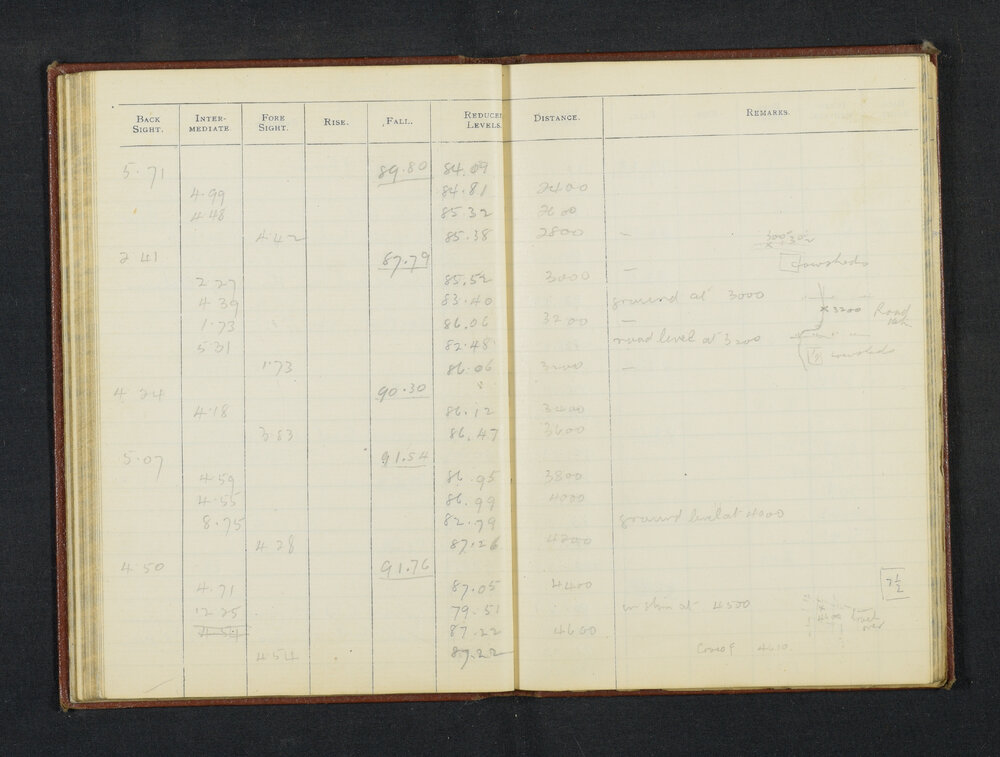 BACK SIGHT. INTER-MEDIATE FORE SIGHT. RISE. FALL. REDUCED LEVELS. DISTANCE. REMARKS.
5.71 89.80 84.09
4.99 84.81 2400
4.48 85.32 2600
4.42 85.38 2800 -
2 41 87.79
2 27 85.52 3000 -
4.39 83.40 ground at 3000
1.73 86.06 3200 - x 3200 Road
5.31 82.48 road level at 3200
1.73 86.06 3200 -
4 24 90.30
4.18 86.12 3400
3.83 86.47 3600
5.07 91.54
4.59 86.95 3800
4.55 86.99 4000
8.75 82.79 ground level at 4000
4 28 87.26 4200
4.50 91.76
4.71 87.05 4400 7½
12 25 79.51 4500
4.54 87.22 4600
4 54 87.22